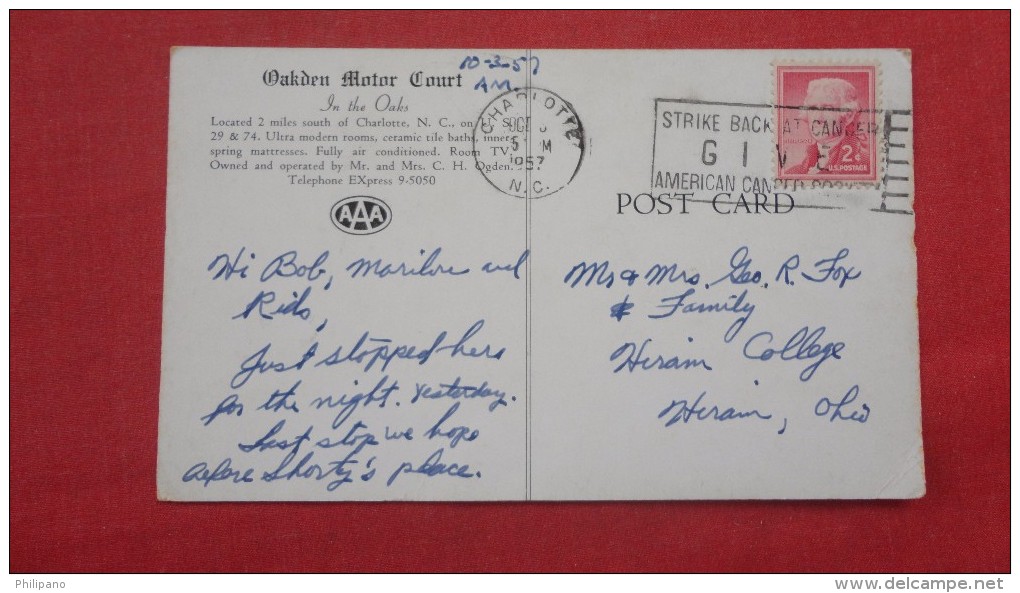 Oakden Motor Court
In the Oaks
Located 2 miles south of Charlotte, N. C., on
29 & 74. Ultra modern rooms, ceramic tile baths, inner
spring mattresses. Fully air conditioned. Room TV.
Owned and operated by Mr. and Mrs. C. H. Ogden.
Telephone EXpress 9-5050
AAA
10-3-57
AM.
CHARLOTTE
1957
N.C.
STRIKE BACK AT CANCER
GIVE
AMERICAN
2¢
U.S. POSTAGE
POST CARD
Hi Bob, Marilou and
Kids,
Just stopped here
for the night. Yesterday.
Last stop we hope
before Shorty's place.
Mr & Mrs. Geo. R. Fox
& Family
Hiram College
Hiram, Ohio
Philipano
www.delcampe.net